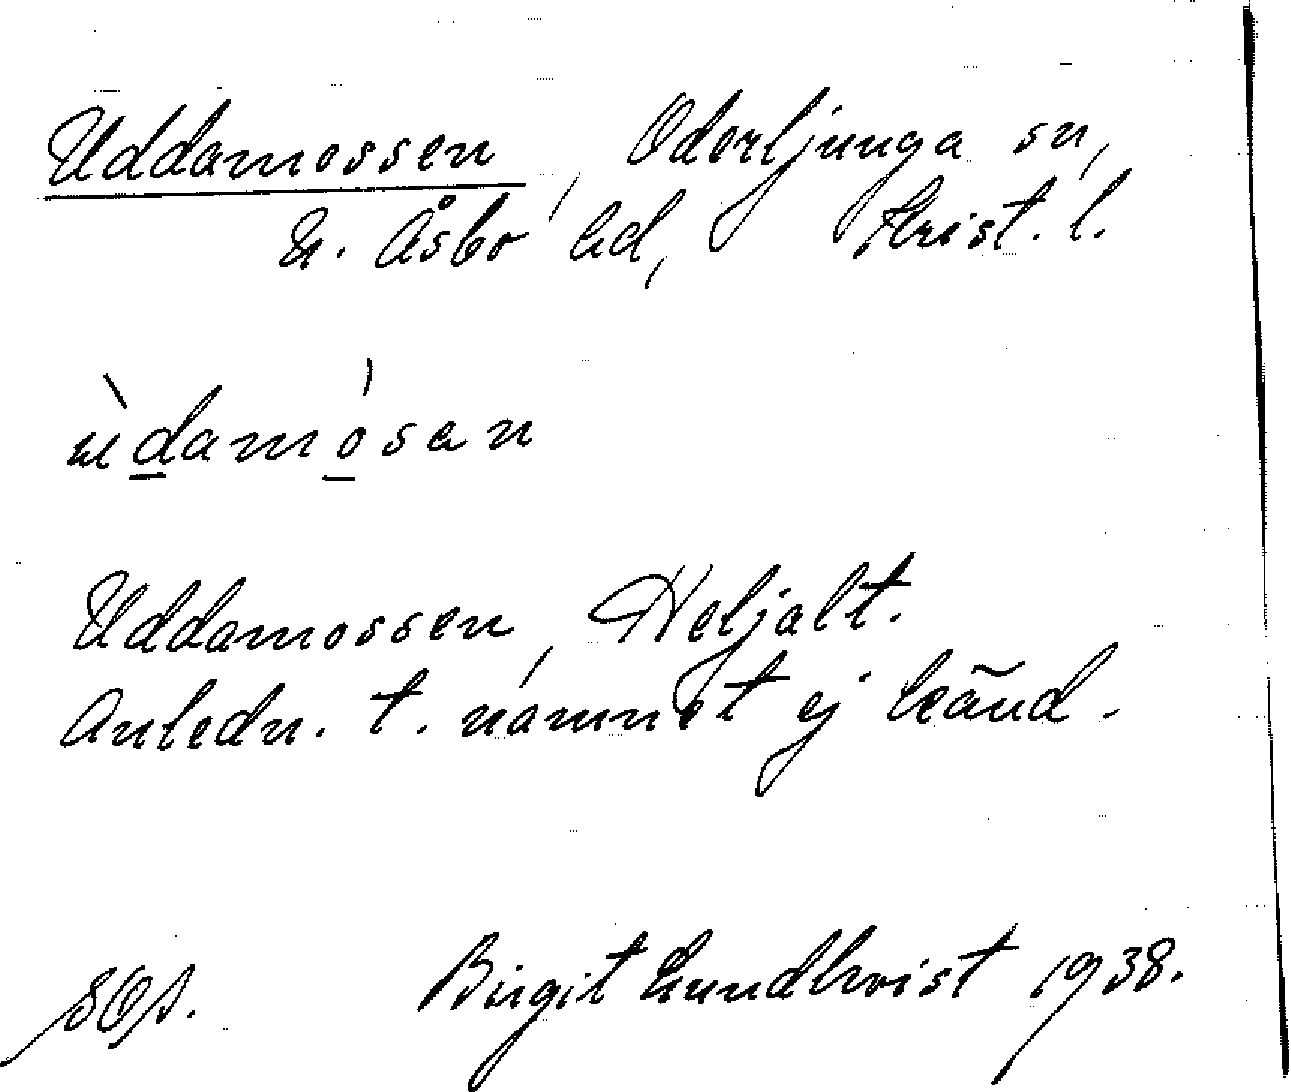 Uddamossen, Oderljunga sn,
N. Åsbo hd, Krist. l.
ùdamósan
Uddamossen, Heljalt.
Anledn. t. namnet ej känd.
Birgit Lundkvist 1938.